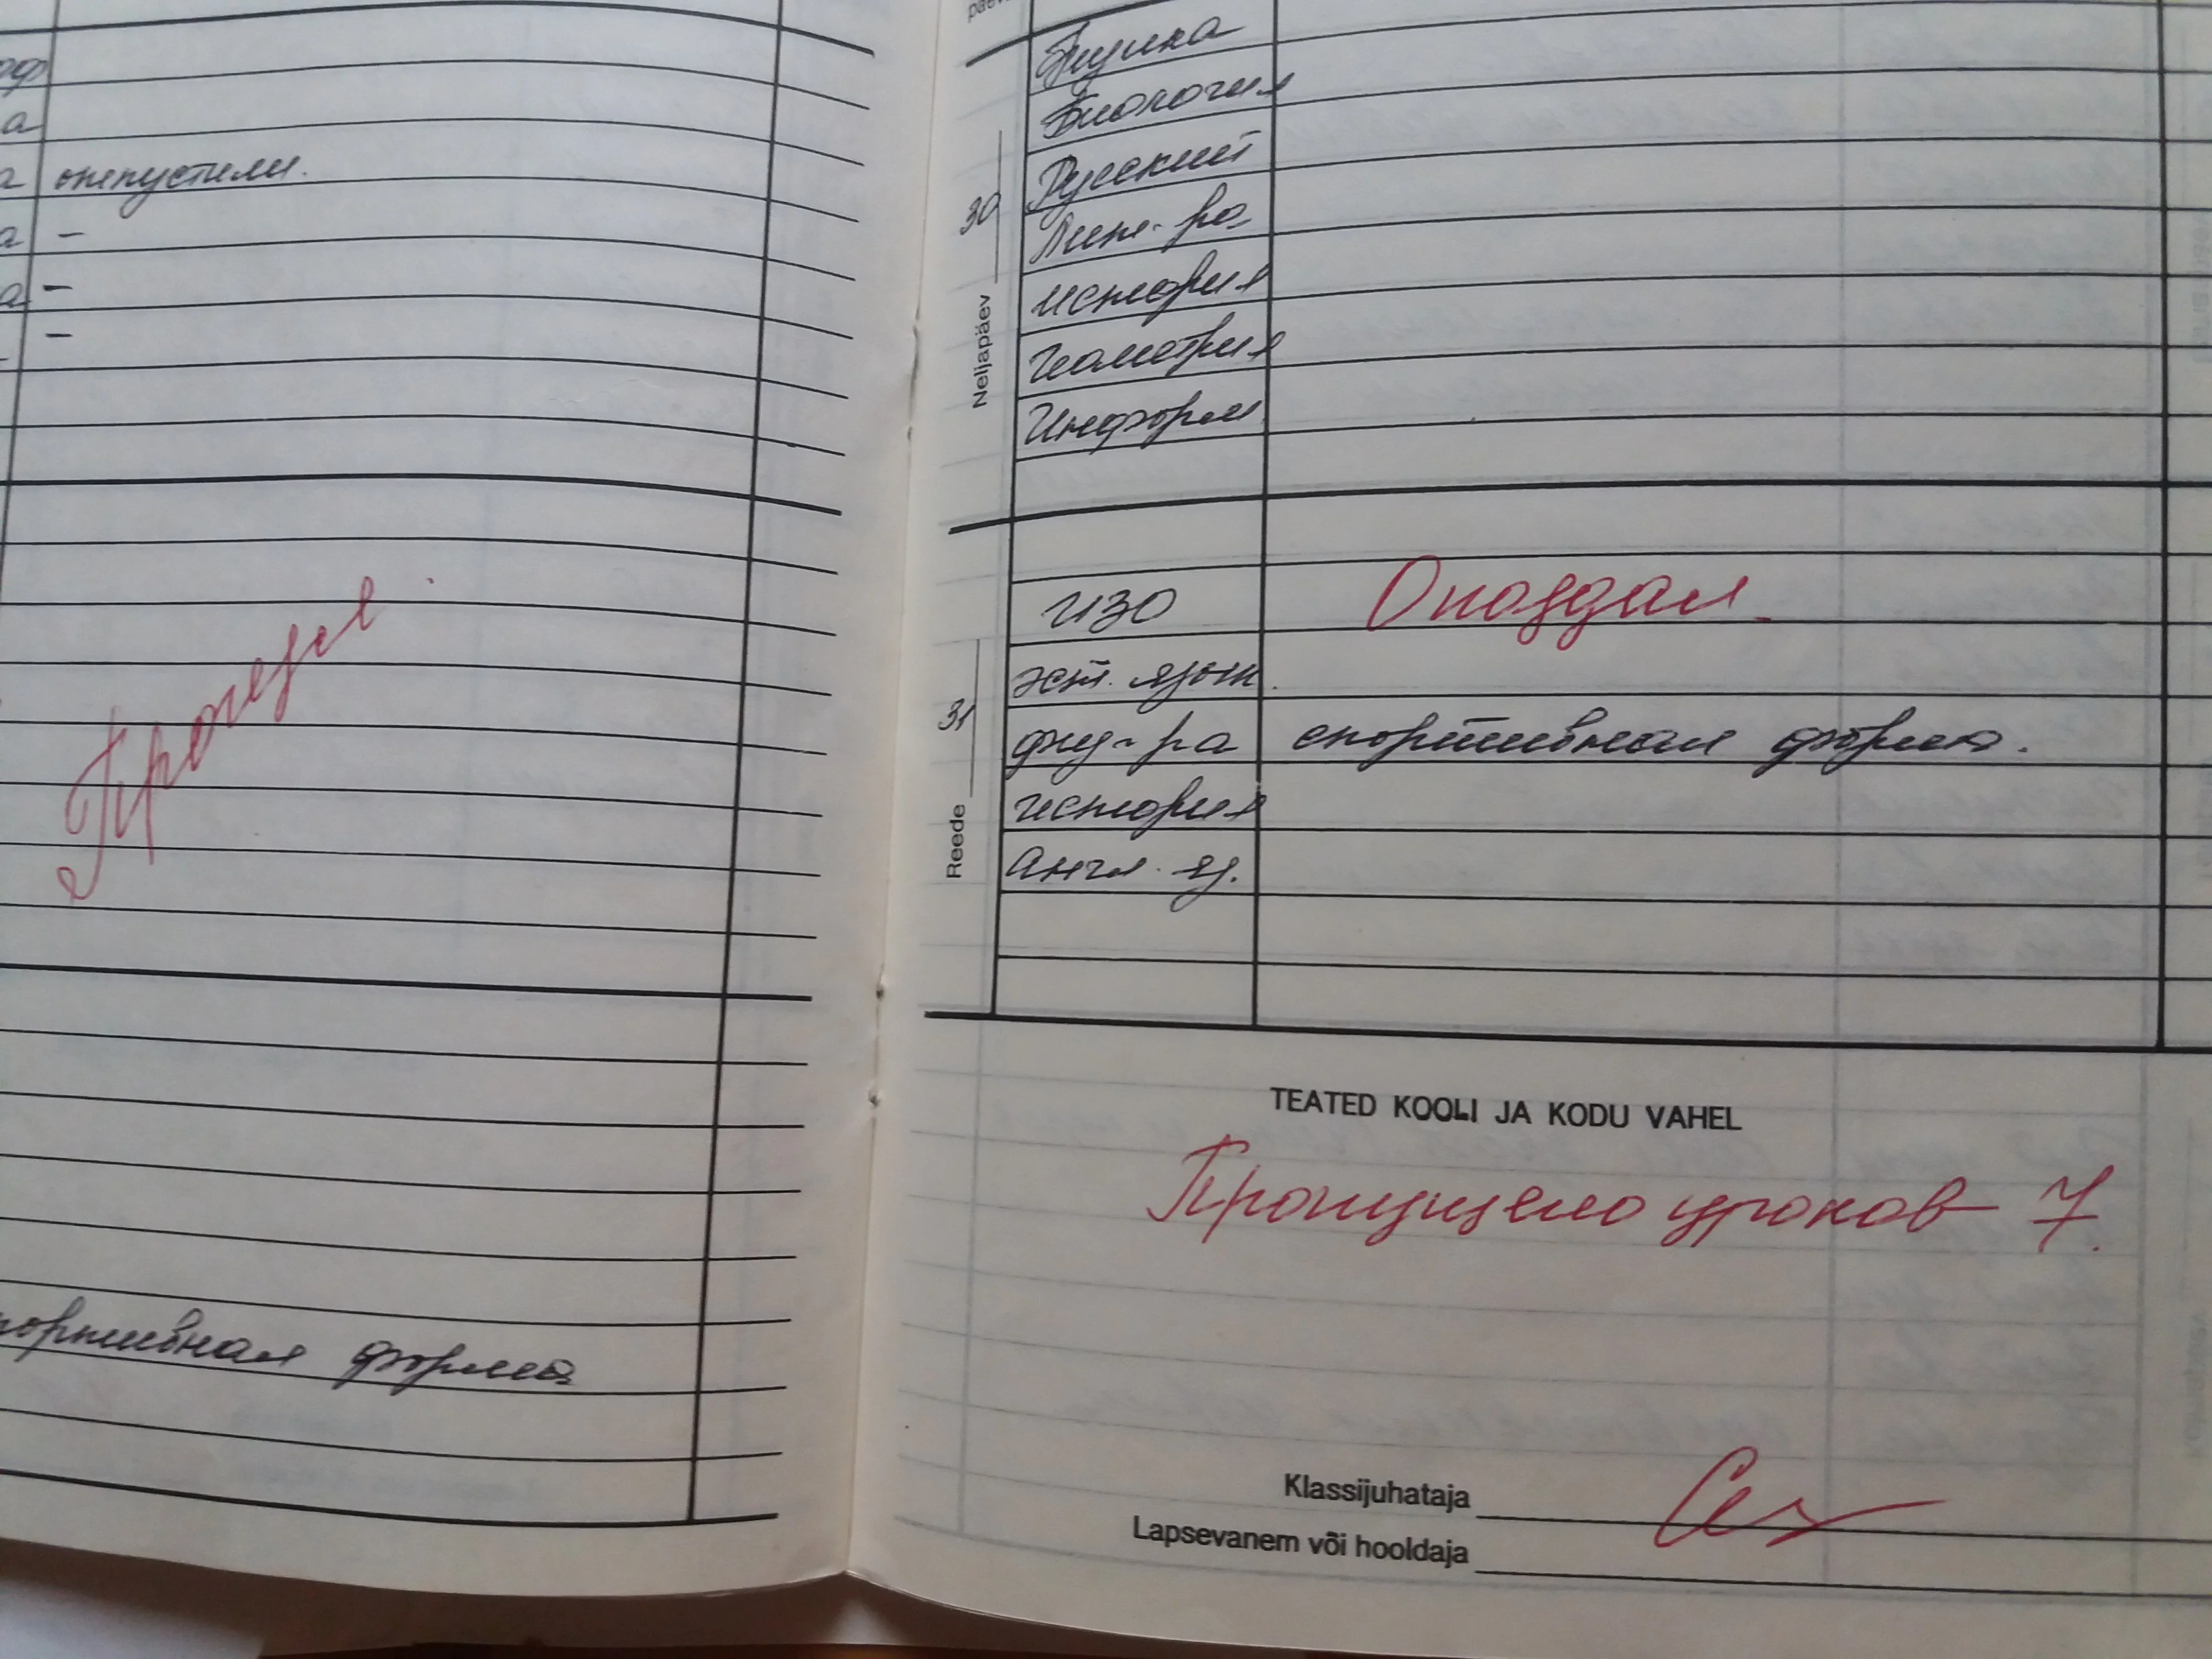 отпустили.
-
-
-
Прогулял.
портивная форма
Neljapäev 30
Физика
Биология
Русский
Лит-ра
история
Геометрия
Информ
Reede 31
ИЗО Опоздал.
эст. язык.
физ-ра спортивная форма.
история
Англ. яз.
TEATED KOOLI JA KODU VAHEL
Пропущено уроков 7.
Klassijuhataja
Lapsevanem või hooldaja